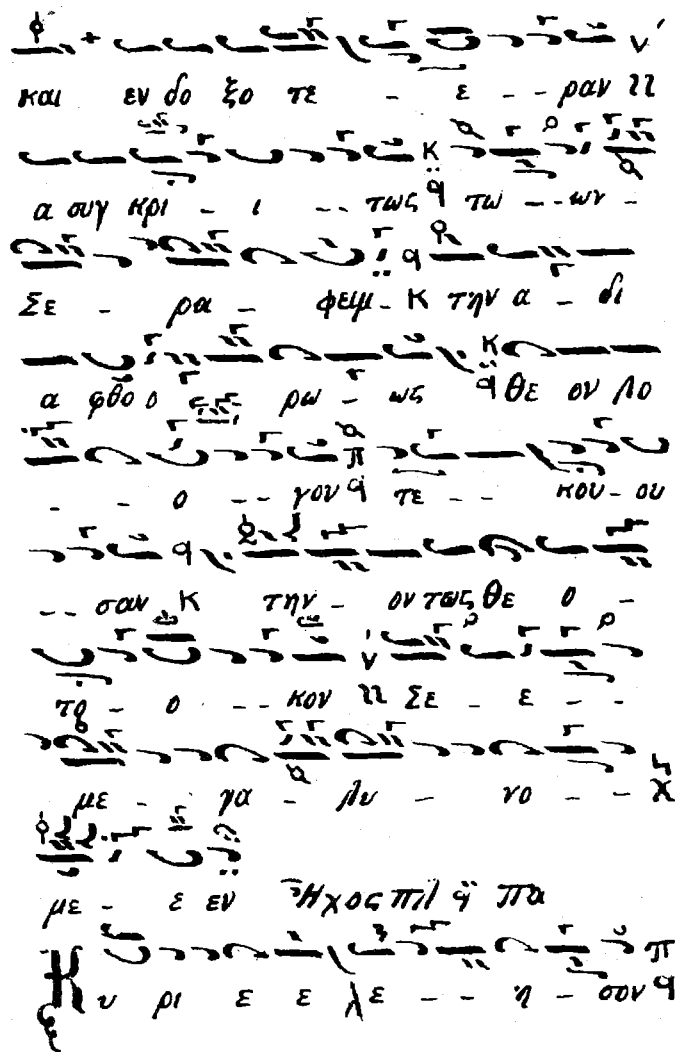 και εν δο ξο τε - ε - - ραν
α συγ κρι - ι - - τως τω - - ων -
Σε - ρα - φειμ - Κ την α - δι
α φθο ο ρω - ως θε ον λο
- - ο - - γον τε - - κου - ου
- - σαν Κ την - οντως θε ο -
το - ο - - κον Σε - ε - -
με - γα - λυ - νο - -
με - ε εν Ἦχος πλ πα
Κ υ ρι ε ε λε - - η - σον